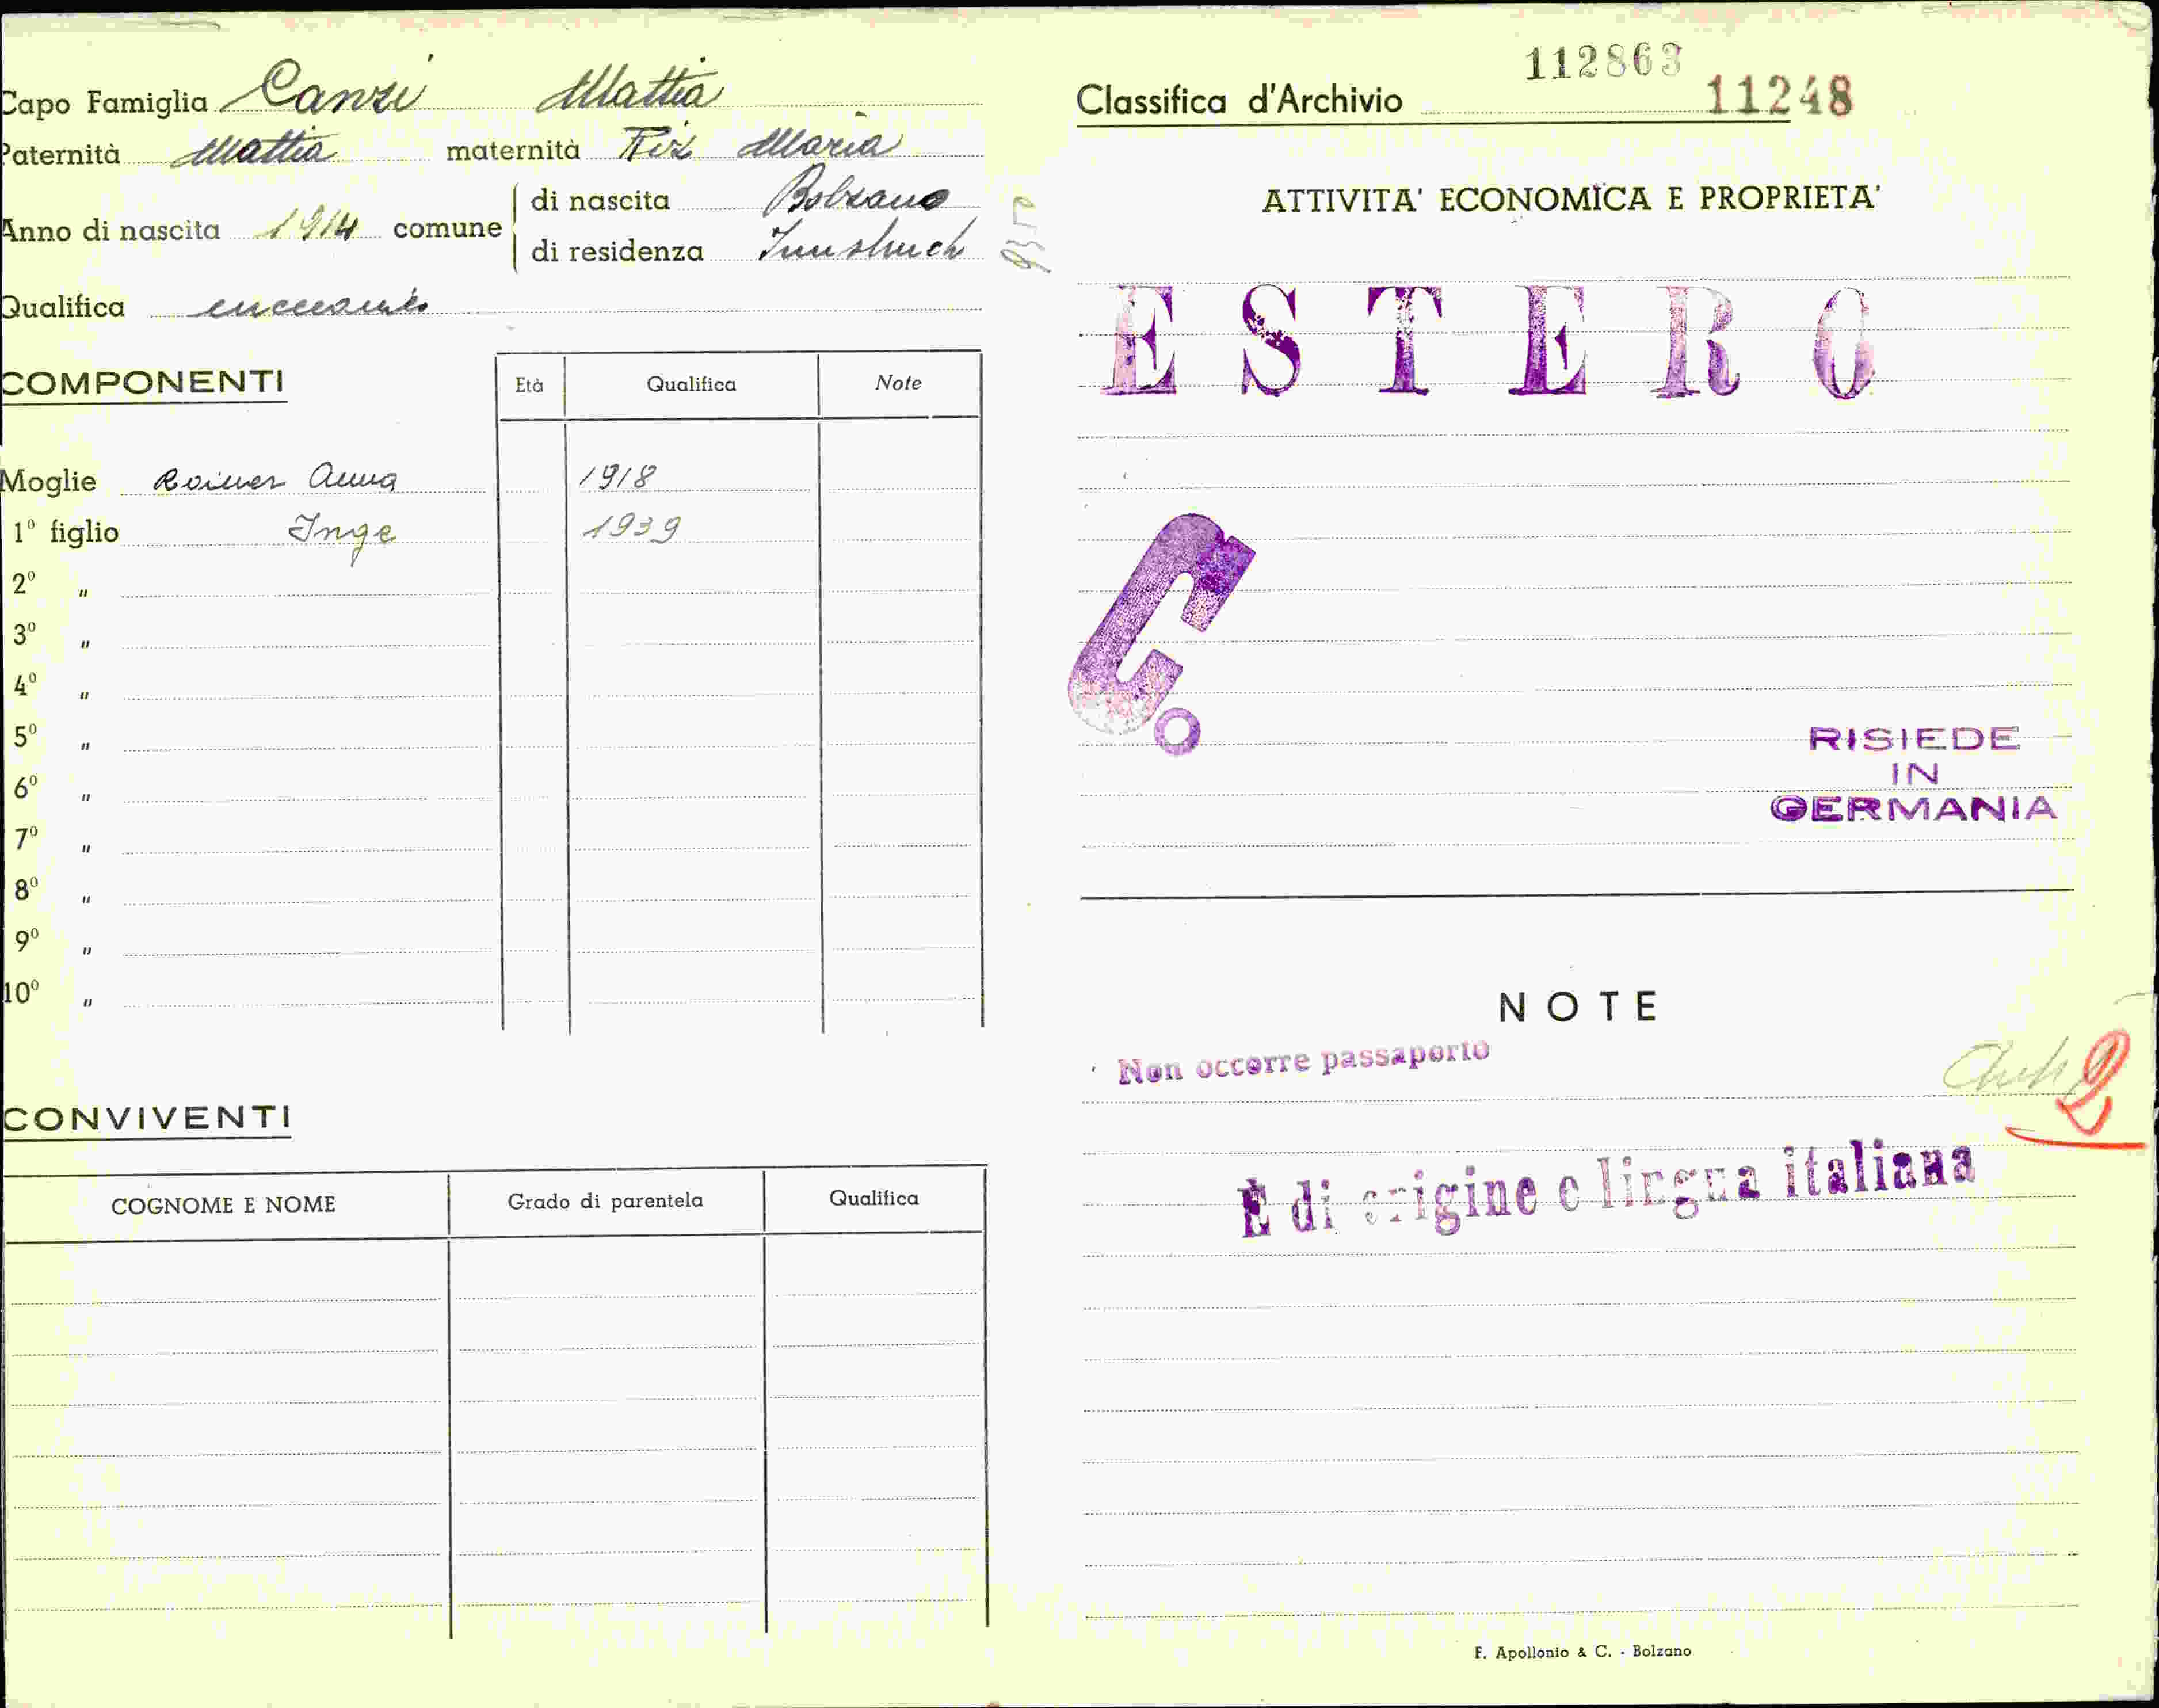 Capo Famiglia Canzi Mattia
Paternità Mattia maternità Fix Maria
Anno di nascita 1914 comune
di nascita Bolzano
di residenza Innsbruck
Qualifica meccanico
COMPONENTI
Età Qualifica Note
Moglie Rainer Anna 1918
1° figlio Inge 1939
2° "
3° "
4° "
5° "
6° "
7° "
8° "
9° "
10° "
CONVIVENTI
COGNOME E NOME Grado di parentela Qualifica
112863
Classifica d'Archivio 11248
ATTIVITA' ECONOMICA E PROPRIETA'
ESTERO
C.
RISIEDE
IN
GERMANIA
NOTE
Non occorre passaporto
2
È di origine e lingua italiana
F. Apollonio & C. - Bolzano